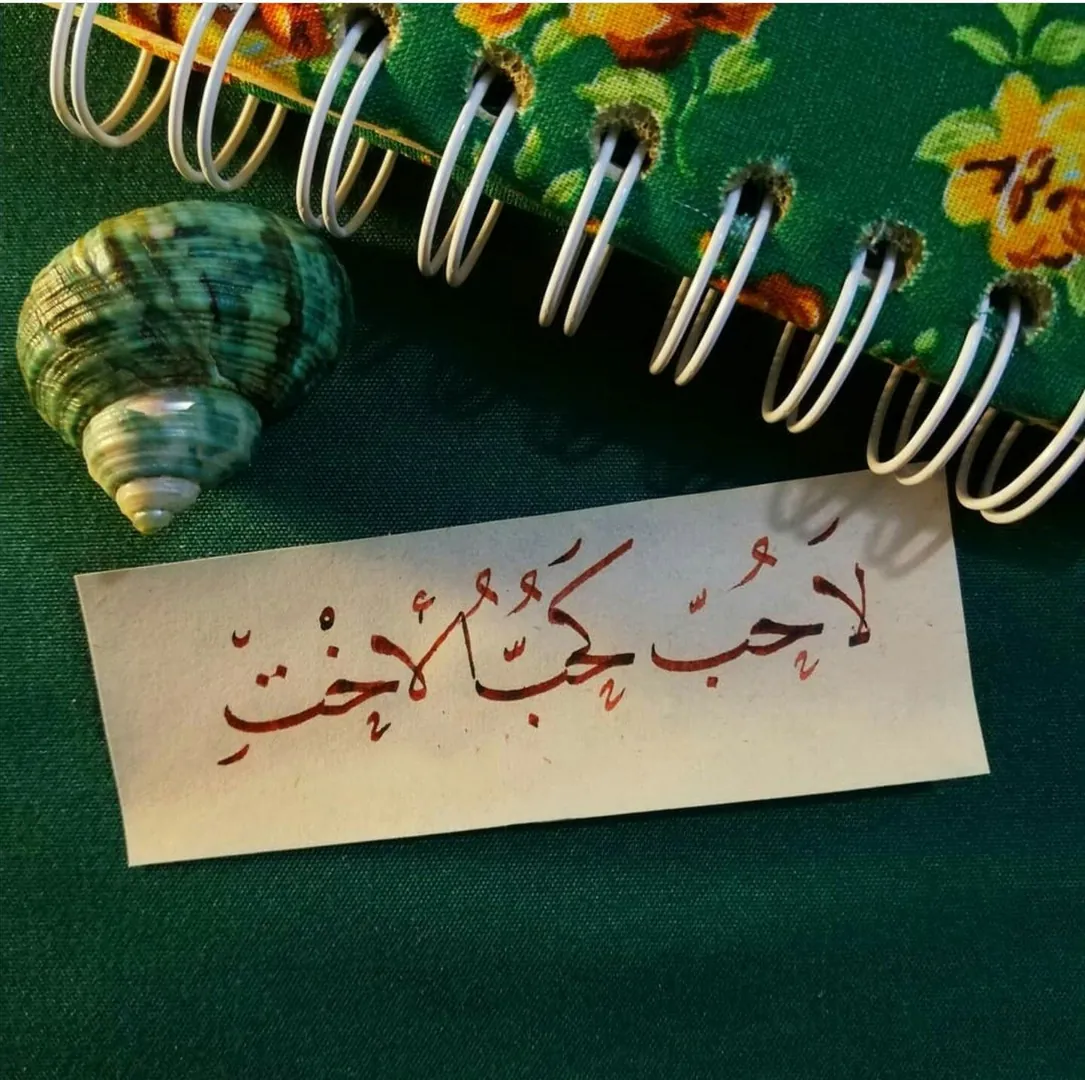 لَا حُبّ كَحُبُّ الأخْتِّ